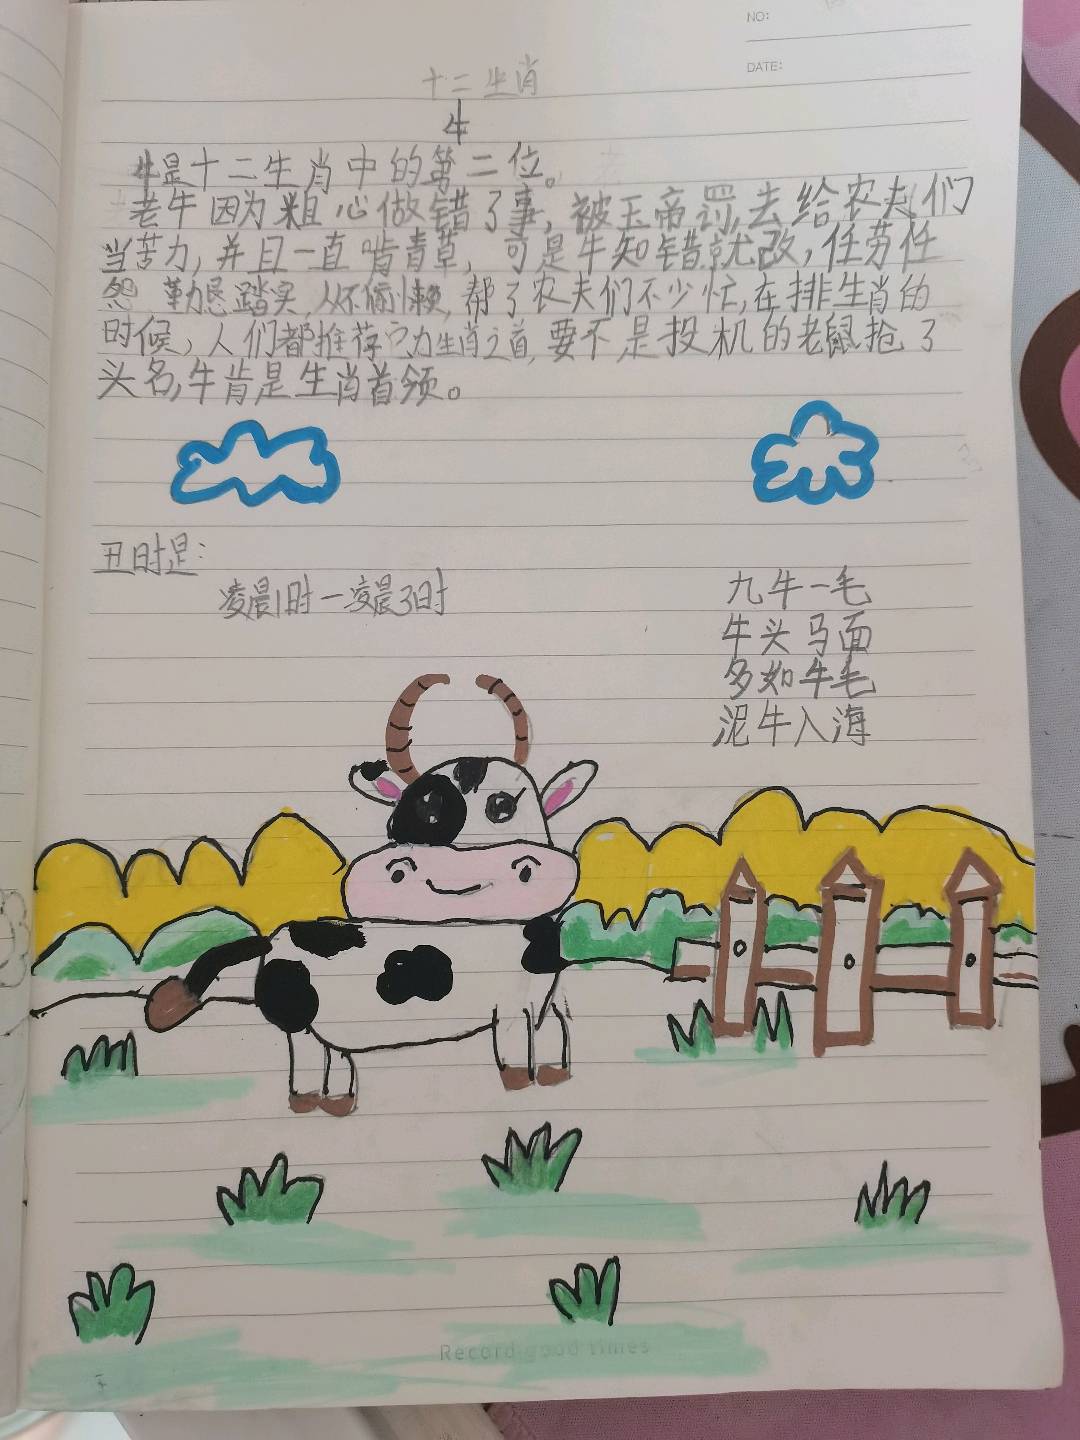 NO:
DATE:
十二生肖
牛
牛是十二生肖中的第二位。
老牛因为粗心做错了事,被玉帝罚,去给农夫们
当苦力,并且一直啃青草,可是牛知错就改,任劳任
怨 勤恳踏实,从不偷懒,帮了农夫们不少忙,在排生肖的
时候,人们都推荐它为生肖之首,要不是投机的老鼠抢了
头名,牛肯是生肖首领。
丑时是:
凌晨1时一凌晨3时
九牛一毛
牛头马面
多如牛毛
泥牛入海
Record good times